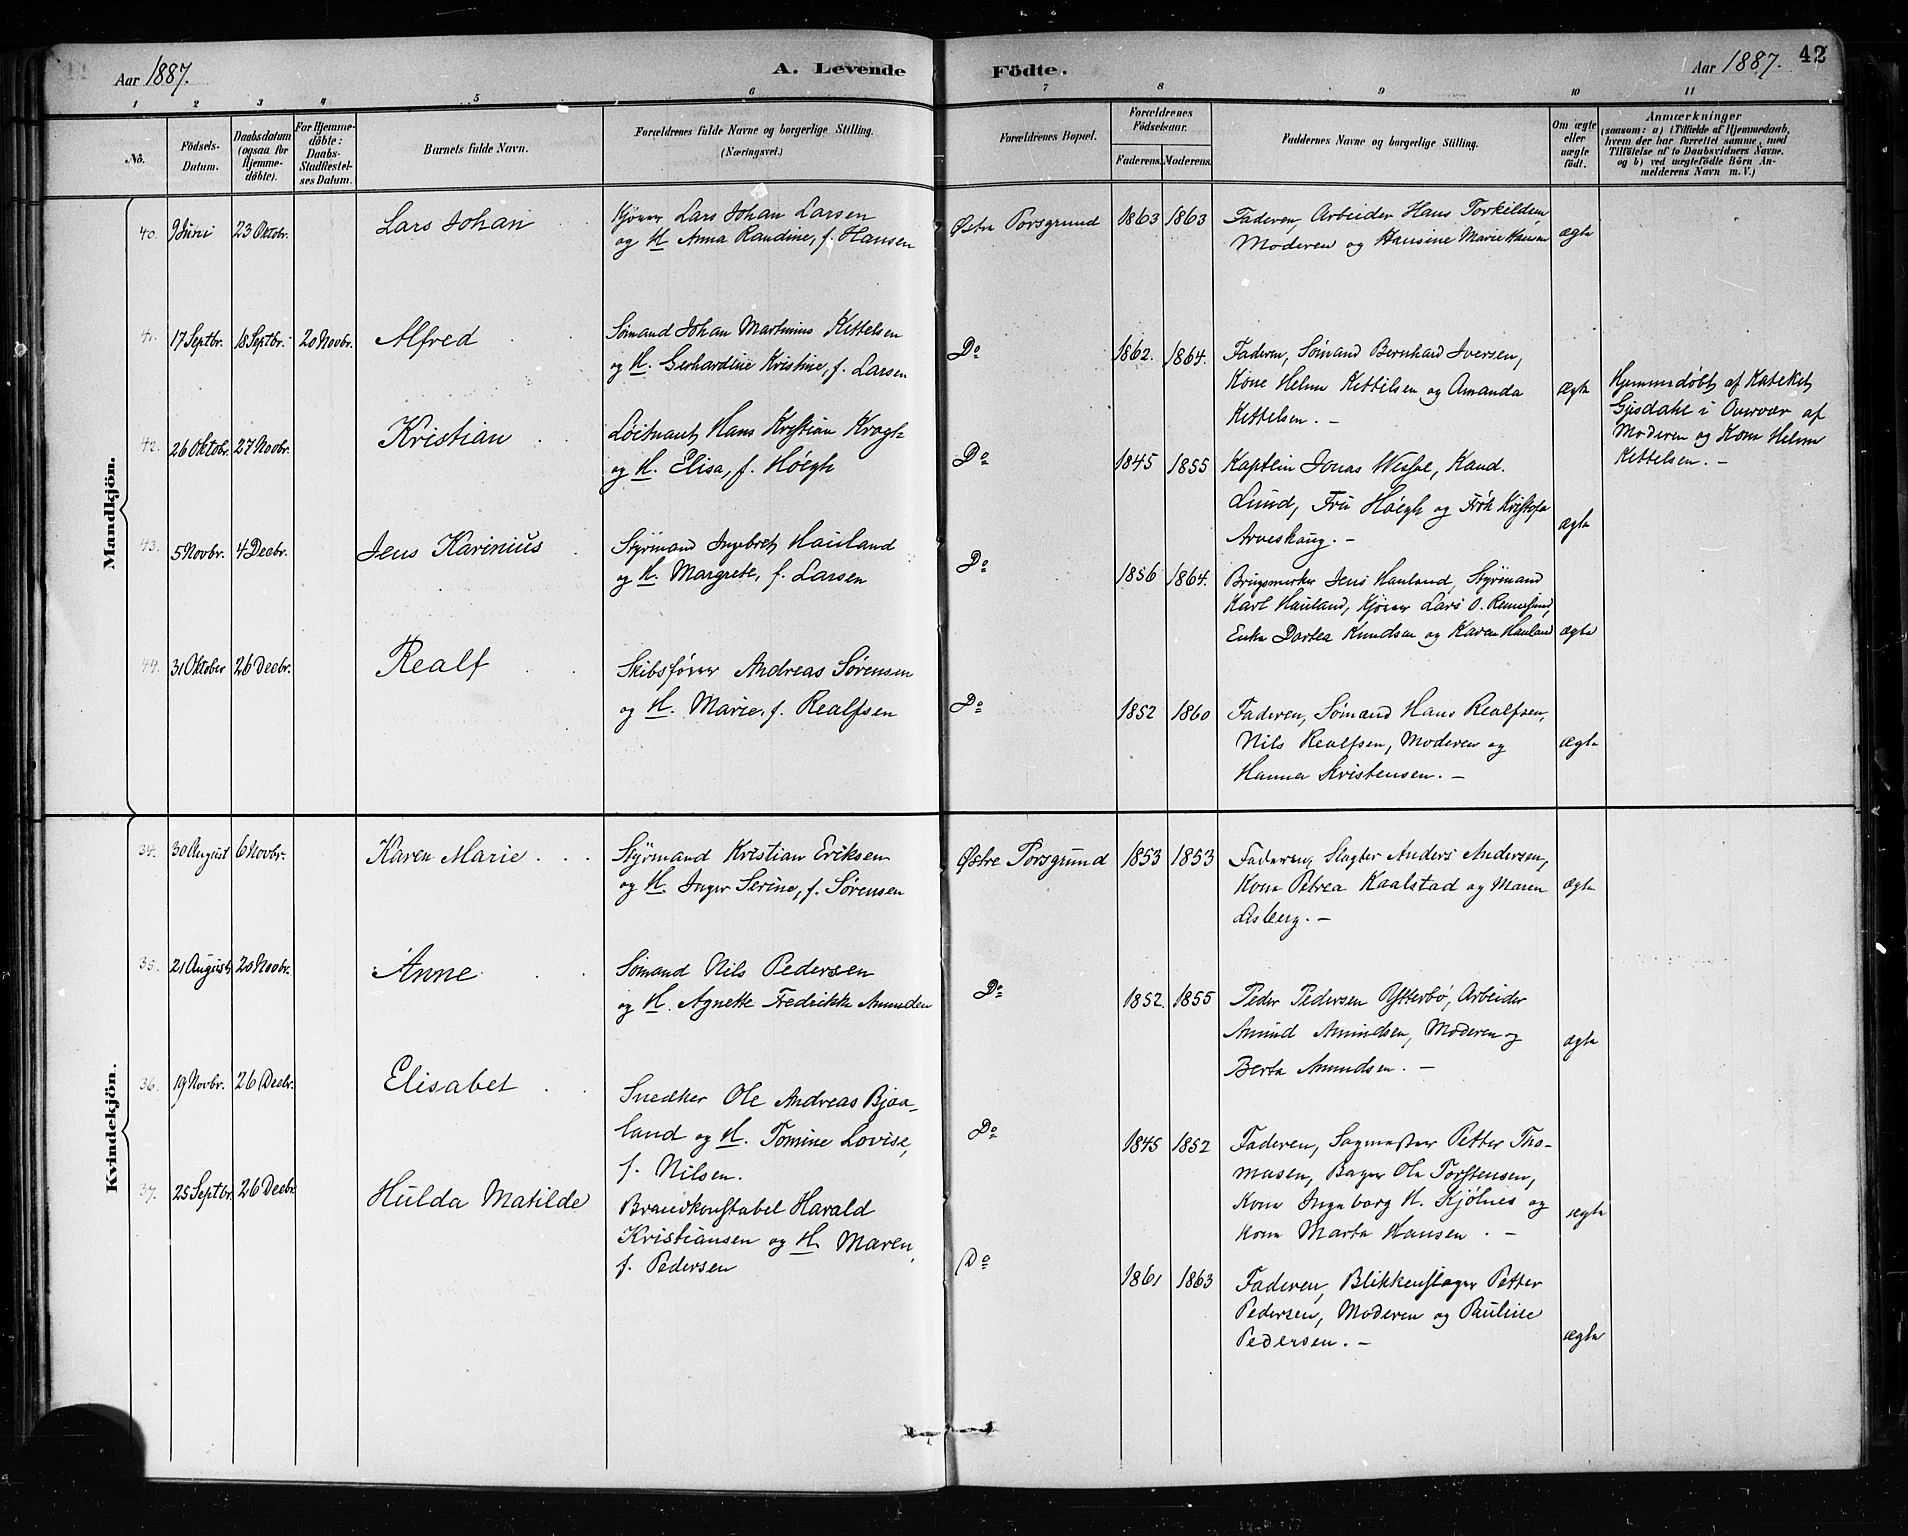 Aar 1887. A. Levende Födte. Aar 1887. 42
1 2 3 4 5 6 7 8 9 10 11
No.
Födsels-Datum.
Daabsdatum (ogsaa for Hjemme-döbte).
For Hjemme-döbte: Daabs-Stadfæstel-ses Datum.
Barnets fulde Navn.
Forældrenes fulde Navne og borgerlige Stilling. (Næringsvei.)
Forældrenes Bopæl.
Forældrenes Födselsaar.
Faderens. Moderens.
Faddernes Navne og borgerlige Stilling.
Om ægte eller uægte födt.
Anmærkninger
(saasom: a) i Tilfælde af Hjemmedaab,
hvem der har forrettet samme, med
Tilföielse af to Daabsvidners Navne.
og b) ved uægtefödte Börn An-
melderens Navn m. V.)
Mandkjön.
40. 9 Juni 23 Oktobr. Lars Johan
Kjører Lars Johan Larsen
og H. Anna Randine, f. Hansen
Østre Porsgrund 1863 1863
Faderen, Arbeider Hans Torkildsen
Moderen og Hansine Marie Hansen
ægte
41. 17 Septbr. 18 Septbr. 20 Novbr. Alfred
Sømand Johan Martinius Kettelsen
og H. Gerhardine Kristine, f. Larsen
Do 1862. 1864.
Faderen, Sømand Bernhard Iversen,
Kone Helene Kettilsen og Amanda
Kettelsen. –
ægte
Hjemmedøbt af Kateket
Gjisdahl i Overvær af
Moderen og Kone Helene
Kettelsen. –
42. 26 Oktobr. 27 Novbr. Kristian
Løitnant Hans Kristian Krogh
og H. Elisa, f. Høegh
Do 1845 1855
Kaptein Jonas Wessel, Kand.
Lund, Fru Høegh og Frøk Kristofa
Arveskaug. –
ægte
43. 5 Novbr. 4 Decbr. Jens Karinius
Styrmand Ingebret Hauland
og H. Margrete, f. Larsen
Do 1856 1864.
Brugsmerker Jens Hauland, Styrmand
Karl Hauland, Kjører Lars O.
Enke Dortea Knudsen og Karen Hauland
ægte
44. 31 Oktober 26 Decbr. Realf
Skibsfører Andreas Sørensen
og H. Marie, f. Realfsen
Do 1852 1860
Faderen, Sømand Hans Realfsen,
Nils Realfsen, Moderen og
Hanna Kristensen. –
ægte
Kvindekjön.
34. 30 August 6 Novbr. Karen Marie
Styrmand Kristian Eriksen
og H. Inger Serine, f. Sørensen
Østre Porsgrund 1853 1853
Faderen, Slagter Anders Andersen,
Kone Petrea Kaalstad og Maren
Lisberg. –
ægte
35. 21 August 20 Novbr. Anne
Sømand Nils Pedersen
og H. Agnette Fredrikke Amundsen
Do 1852. 1855
Peder Pedersen Ytterbø, Arbeider
Amund Amundsen, Moderen og
Berta Amundsen. –
ægte
36. 19 Novbr. 26 Decbr. Elisabet
Snedker Ole Andreas Bjaa-
land og H. Tomine Lovise,
f. Nilsen.
Do 1845 1852
Faderen, Sagmester Petter Tho-
masen, Bager Ole Torstensen,
Kone Ingeborg H. Kjølnes og
Kone Marta Hansen. –
ægte
37. 25 Septbr. 26 Decbr. Hulda Matilde
Brandkonstabel Harald
Kristiansen og H. Maren,
f. Pedersen
Do 1861 1863
Faderen, Blikkenslager Petter
Pedersen, Moderen og Pauline
Pedersen. –
ægte